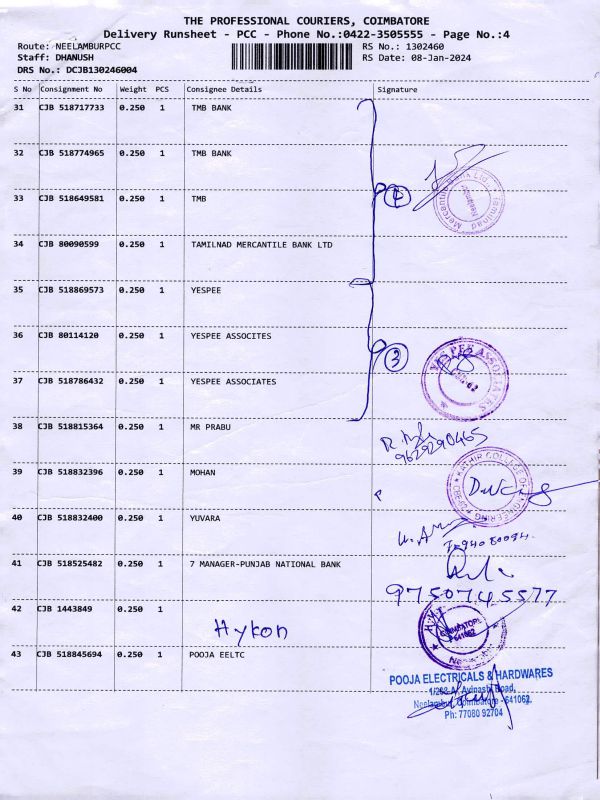 THE PROFESSIONAL COURIERS, COIMBATORE
Delivery Runsheet - PCC - Phone No.:0422-3505555 - Page No.:4
Route: NEELAMBURPCC RS No.: 1302460
Staff: DHANUSH RS Date: 08-Jan-2024
DRS No.: DCJB130246004
S No Consignment No Weight PCS Consignee Details Signature
31 CJB 518717733 0.250 1 TMB BANK
32 CJB 518774965 0.250 1 TMB BANK
33 CJB 518649581 0.250 1 TMB 4
34 CJB 80090599 0.250 1 TAMILNAD MERCANTILE BANK LTD
35 CJB 518869573 0.250 1 YESPEE
36 CJB 80114120 0.250 1 YESPEE ASSOCITES 3
37 CJB 518786432 0.250 1 YESPEE ASSOCIATES
YES PEE ASSOCIATES
38 CJB 518815364 0.250 1 MR PRABU
9629290465
39 CJB 518832396 0.250 1 MOHAN
KATHIR COLLEGE OF ENGINEERING
40 CJB 518832400 0.250 1 YUVARA
41 CJB 518525482 0.250 1 7 MANAGER-PUNJAB NATIONAL BANK
9750745577
42 CJB 1443849 0.250 1
Hykon
COIMBATORE
641062
43 CJB 518845694 0.250 1 POOJA EELTC
POOJA ELECTRICALS & HARDWARES
Avinashi Road,
Neelambur, Coimbatore - 641062.
Ph: 77080 92704